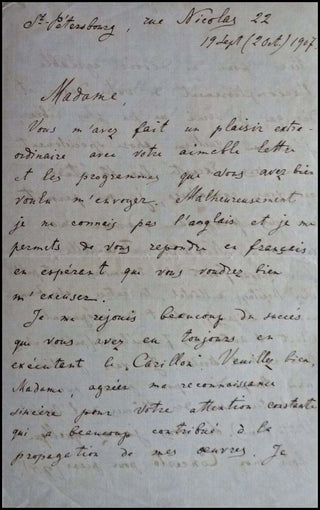 St-Pétersbourg, rue Nicolas 22
19 Sept (2 Oct.) 1907
Madame,
Vous m'avez fait un plaisir extra-
ordinaire avec votre aimable lettre
et les programmes que vous avez bien
voulu m'envoyer. Malheureusement
je ne connais pas l'anglais et je me
permets de vous repondre en français
en espérant que vous voudrez bien
m'excuser.
Je me rejouis beaucoup du succès
que vous avez eu toujours en
exécutant le Carillon. Veuillez bien,
Madame, agréer ma reconnaissance
sincère pour votre attention constante
qui a beaucoup contribué à la
propagation de mes œuvres. Je